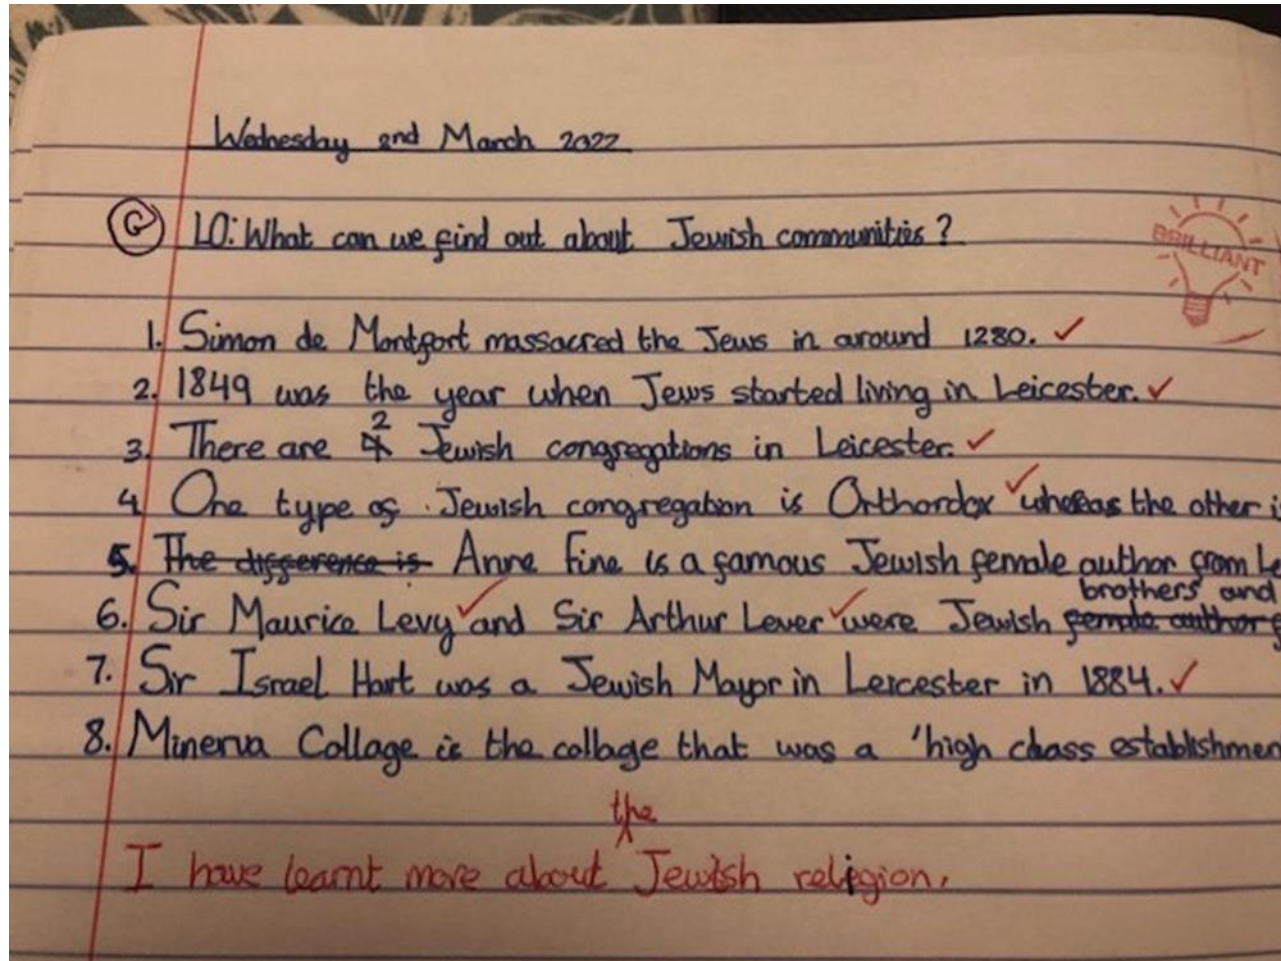 Wednesday 2nd March 2022
G LO: What can we find out about Jewish communities?
BRILLIANT
1. Simon de Montfort massacred the Jews in around 1280.
2. 1849 was the year when Jews started living in Leicester.
3. There are 2 Jewish congregations in Leicester.
4. One type of Jewish congregation is Orthordox whereas the other i
5. The difference is Anne Fine is a famous Jewish female author from Le
brothers and
6. Sir Maurice Levy and Sir Arthur Lever were Jewish female author f
7. Sir Israel Hart was a Jewish Mayor in Leicester in 1884.
8. Minerva Collage is the collage that was a 'high class establishmen
the
I have learnt more about Jewish religion.